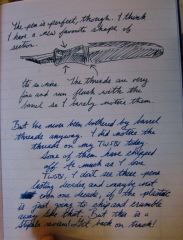 The pen is perfect, though. I think
I have a new favorite shape of
section.
It is nice. The threads are very
fine and run flush with the
barrel so I barely notice them.
But I've never been bothered by barrel
threads anyway. I did notice the
threads on my TWSBI today
Some of them have chipped
off. As much as I love
TWSBI, I don't see these pens
lasting decades and maybe not
even one decade, if the plastic
is just going to chip and crumble
away like that. But this is a
review! Get back on track!